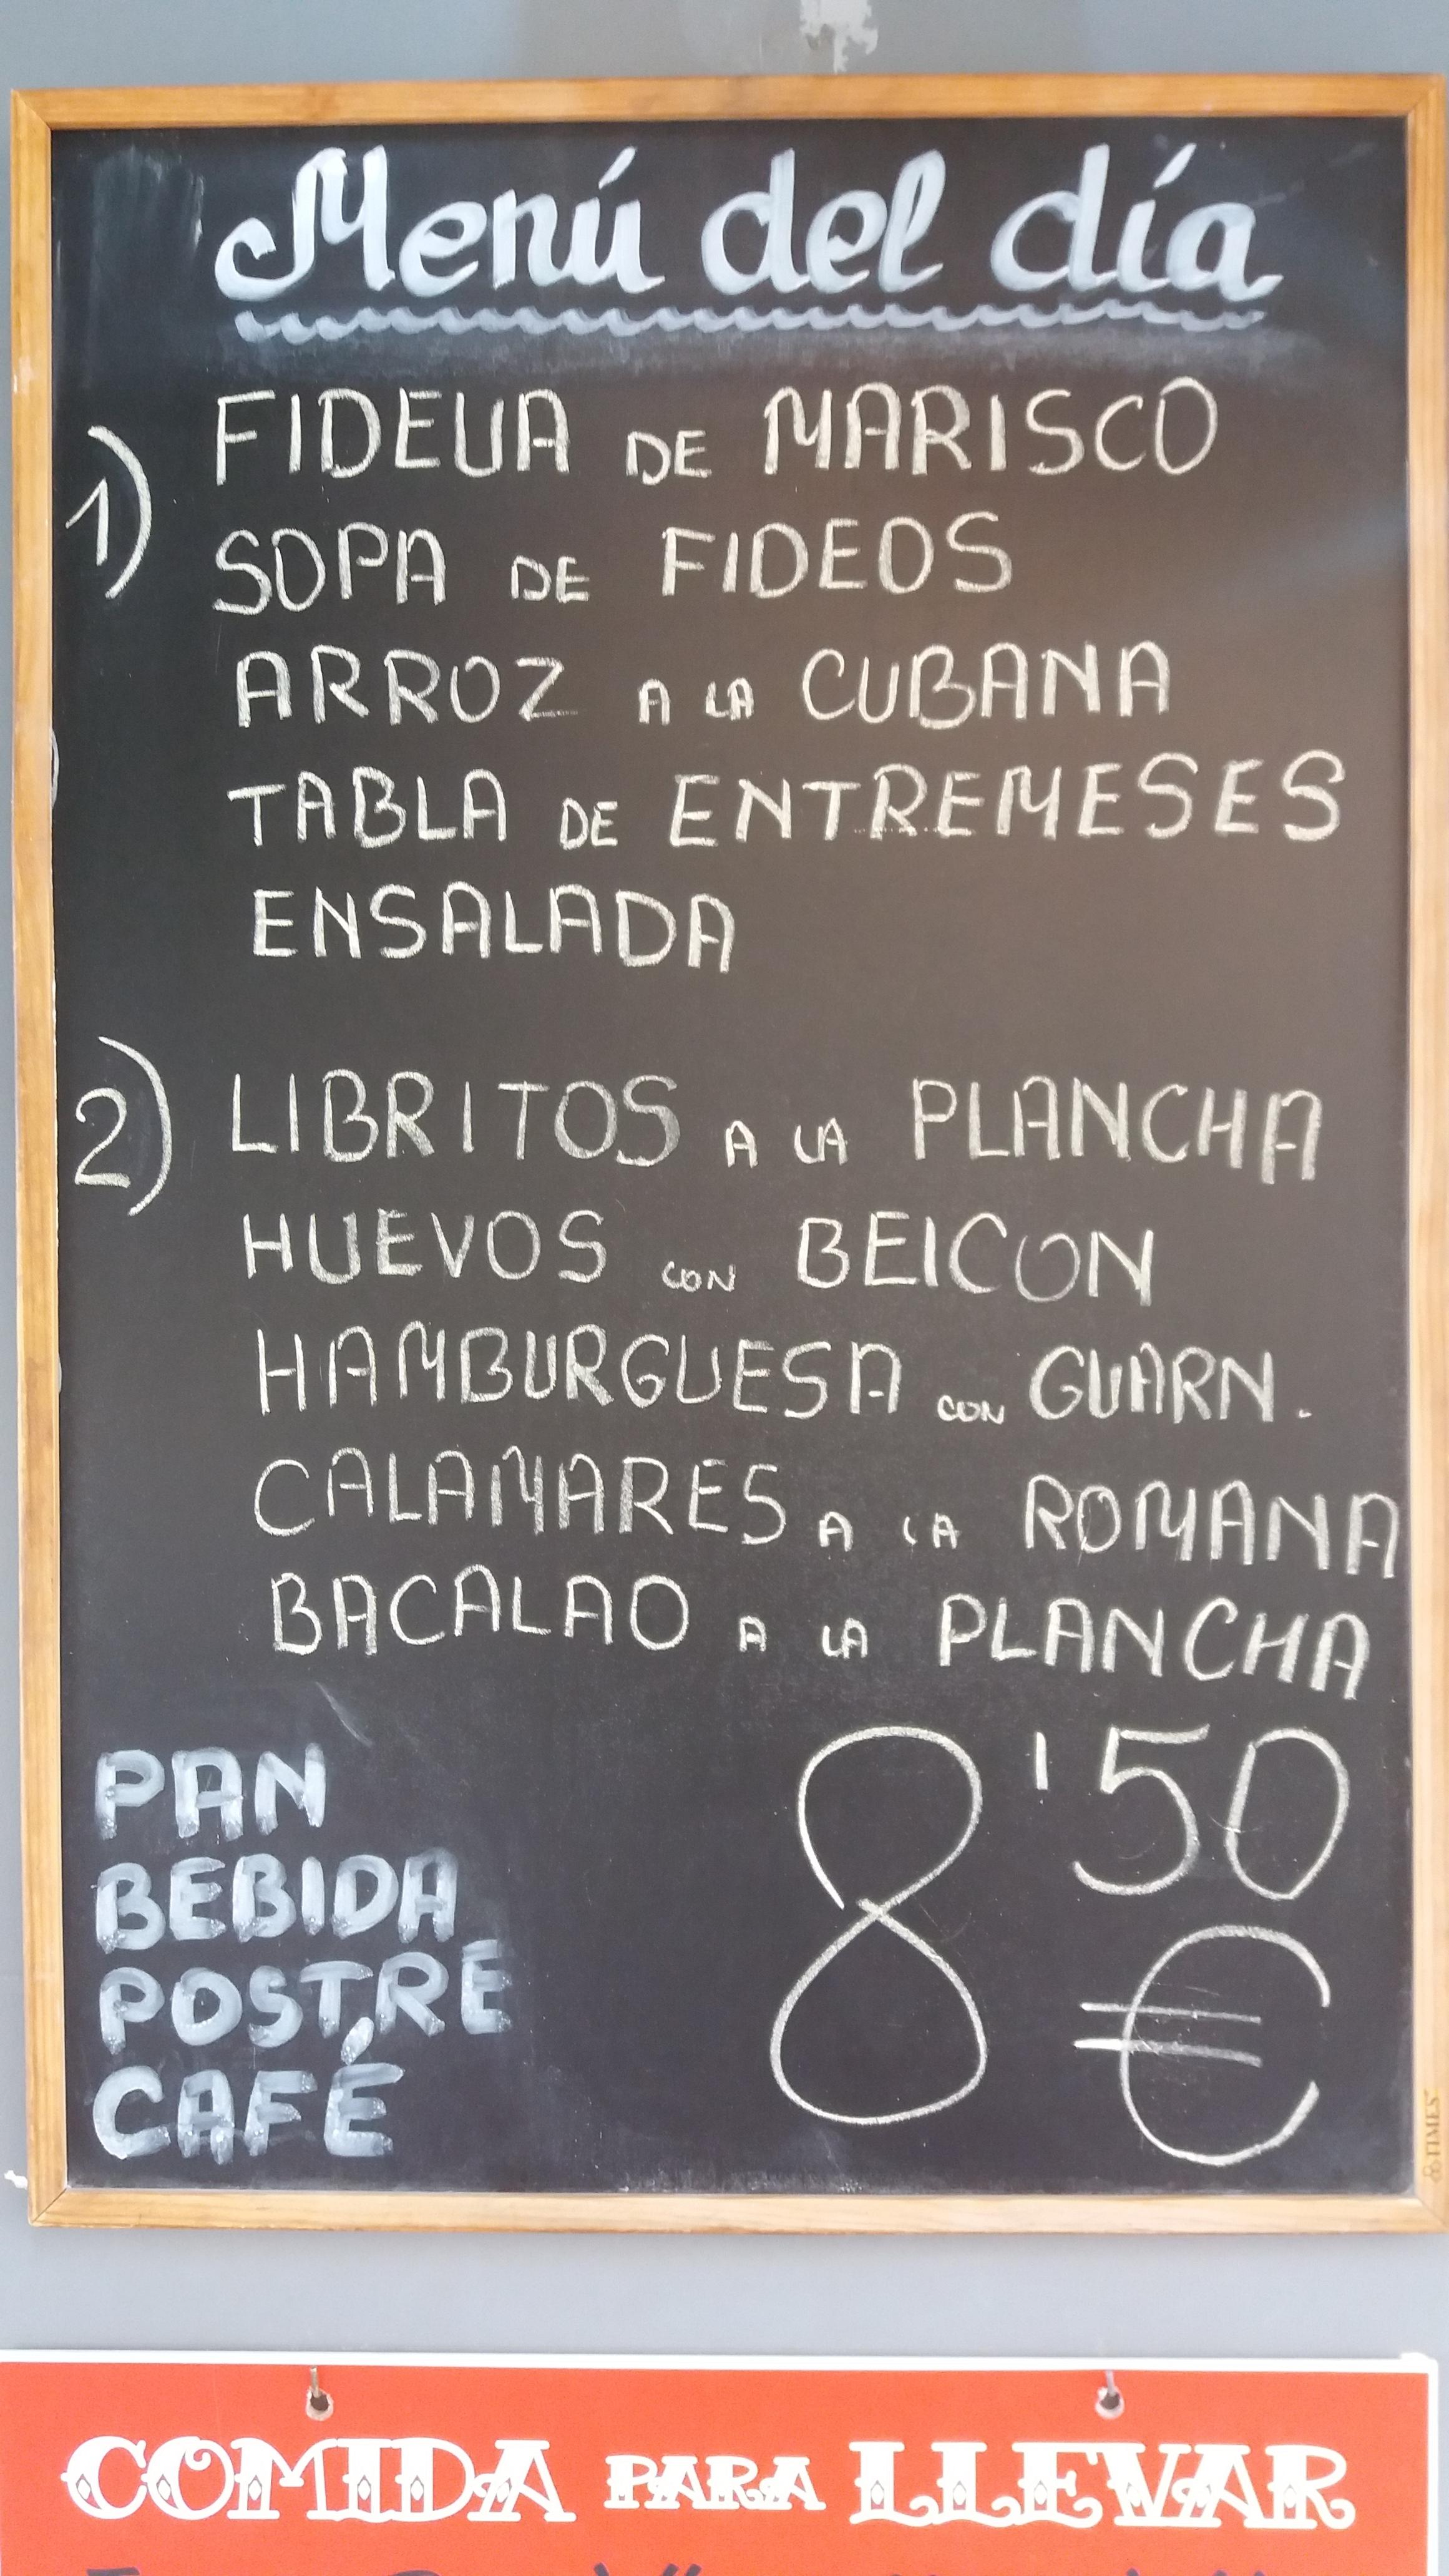 Menú del día
1) FIDEUA DE MARISCO
SOPA DE FIDEOS
ARROZ A LA CUBANA
TABLA DE ENTREMESES
ENSALADA
2) LIBRITOS A LA PLANCHA
HUEVOS CON BEICON
HAMBURGUESA CON GUARN.
CALAMARES A LA ROMANA
BACALAO A LA PLANCHA
PAN
BEBIDA
POSTRE
CAFÉ
8'50
€
COMIDA PARA LLEVAR